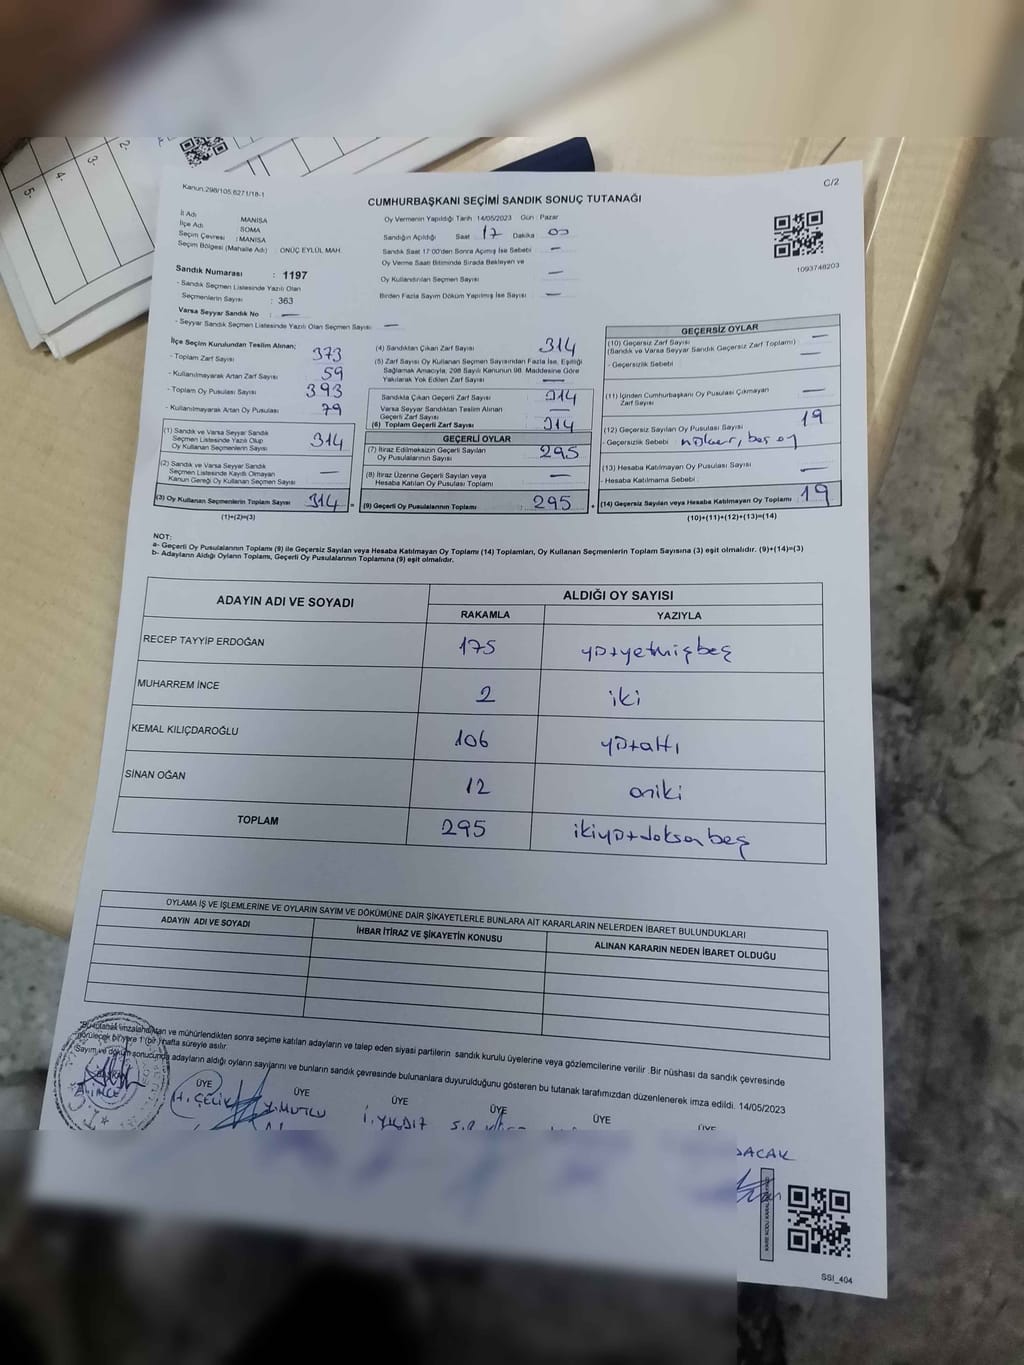 Kanun:298/105,6271/18-1
C/2
CUMHURBAŞKANI SEÇİMİ SANDIK SONUÇ TUTANAĞI
İl Adı MANİSA
İlçe Adı SOMA
Seçim Çevresi : MANİSA
Seçim Bölgesi (Mahalle Adı) : ONÜÇ EYLÜL MAH.
Oy Vermenin Yapıldığı Tarih :14/05/2023 Gün : Pazar
Sandığın Açıldığı Saat 17 Dakika 00
Sandık Saat 17:00'den Sonra Açımış İse Sebebi —
Oy Verme Saati Bitiminde Sırada Bekleyen ve
Oy Kullandırılan Seçmen Sayısı —
Birden Fazla Sayım Döküm Yapılmış İse Sayısı —
1093748203
Sandık Numarası : 1197
- Sandık Seçmen Listesinde Yazılı Olan
Seçmenlerin Sayısı : 363
Varsa Seyyar Sandık No —
- Seyyar Sandık Seçmen Listesinde Yazılı Olan Seçmen Sayısı —
İlçe Seçim Kurulundan Teslim Alınan;
- Toplam Zarf Sayısı 373
- Kullanılmayarak Artan Zarf Sayısı 59
- Toplam Oy Pusulası Sayısı 393
- Kullanılmayarak Artan Oy Pusulası 79
(1) Sandık ve Varsa Seyyar Sandık
Seçmen Listesinde Yazılı Olup
Oy Kullanan Seçmenlerin Sayısı 314
(2) Sandık ve Varsa Seyyar Sandık
Seçmen Listesinde Kayıtlı Olmayan
Kanun Gereği Oy Kullanan Seçmen Sayısı —
(3) Oy Kullanan Seçmenlerin Toplam Sayısı 314 =
(1)+(2)=(3)
(4) Sandıktan Çıkan Zarf Sayısı 314
(5) Zarf Sayısı Oy Kullanan Seçmen Sayısından Fazla İse, Eşitliği
Sağlamak Amacıyla, 298 Sayılı Kanunun 98. Maddesine Göre
Yakılarak Yok Edilen Zarf Sayısı —
Sandıkta Çıkan Geçerli Zarf Sayısı 314
Varsa Seyyar Sandıktan Teslim Alınan
Geçerli Zarf Sayısı —
(6) Toplam Geçerli Zarf Sayısı 314
GEÇERLİ OYLAR
(7) İtiraz Edilmeksizin Geçerli Sayılan
Oy Pusulalarının Sayısı 295
(8) İtiraz Üzerine Geçerli Sayılan veya
Hesaba Katılan Oy Pusulası Toplamı —
(9) Geçerli Oy Pusulalarının Toplamı : 295 +
GEÇERSİZ OYLAR
(10) Geçersiz Zarf Sayısı —
(Sandık ve Varsa Seyyar Sandık Geçersiz Zarf Toplamı) —
- Geçersizlik Sebebi
(11) İçinden Cumhurbaşkanı Oy Pusulası Çıkmayan
Zarf Sayısı —
(12) Geçersiz Sayılan Oy Pusulası Sayısı 19
- Geçersizlik Sebebi
(13) Hesaba Katılmayan Oy Pusulası Sayısı —
- Hesaba Katılmama Sebebi
(14) Geçersiz Sayılan veya Hesaba Katılmayan Oy Toplamı 19
(10)+(11)+(12)+(13)=(14)
NOT:
a- Geçerli Oy Pusulalarının Toplamı (9) ile Geçersiz Sayılan veya Hesaba Katılmayan Oy Toplamı (14) Toplamları, Oy Kullanan Seçmenlerin Toplam Sayısına (3) eşit olmalıdır. (9)+(14)=(3)
b- Adayların Aldığı Oyların Toplamı, Geçerli Oy Pusulalarının Toplamına (9) eşit olmalıdır.
ADAYIN ADI VE SOYADI ALDIĞI OY SAYISI
RAKAMLA YAZIYLA
RECEP TAYYİP ERDOĞAN 175 yüzyetmişbeş
MUHARREM İNCE 2 iki
KEMAL KILIÇDAROĞLU 106 yüzaltı
SİNAN OĞAN 12 oniki
TOPLAM 295 ikiyüzdoksanbeş
OYLAMA İŞ VE İŞLEMLERİNE VE OYLARIN SAYIM VE DÖKÜMÜNE DAİR ŞİKAYETLERLE BUNLARA AİT KARARLARIN NELERDEN İBARET BULUNDUKLARI
ADAYIN ADI VE SOYADI İHBAR İTİRAZ VE ŞİKAYETİN KONUSU ALINAN KARARIN NEDEN İBARET OLDUĞU
"Bu tutanak imzalandıktan ve mühürlendikten sonra seçime katılan adayların ve talep eden siyasi partilerin sandık kurulu üyelerine veya gözlemcilerine verilir .Bir nüshası da sandık çevresinde
görülecek bir yere 1 (bir ) hafta süreyle asılır.
Sayım ve döküm sonucunda adayların aldığı oyların sayılarını ve bunların sandık çevresinde bulunanlara duyurulduğunu gösteren bu tutanak tarafımızdan düzenlenerek imza edildi. 14/05/2023
BAŞKAN ÜYE ÜYE ÜYE ÜYE ÜYE ÜYE
H.ÇELİK Y.MUTLU İ.YILDIZ
SSI_404